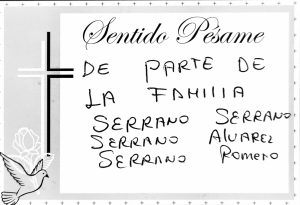 Sentido Pésame
DE PARTE DE
LA FAMILIA
SERRANO SERRANO
SERRANO ALVAREZ
SERRANO Romero